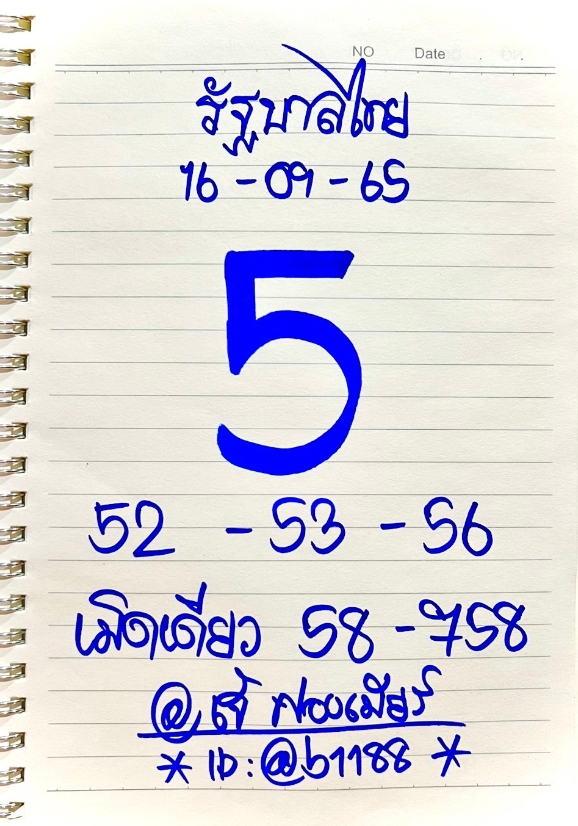 NO Date
รัฐบาลไทย
16-09-65
5
52 - 53 - 56
เม็ดเดียว 58-758
* ID:@b1188 *